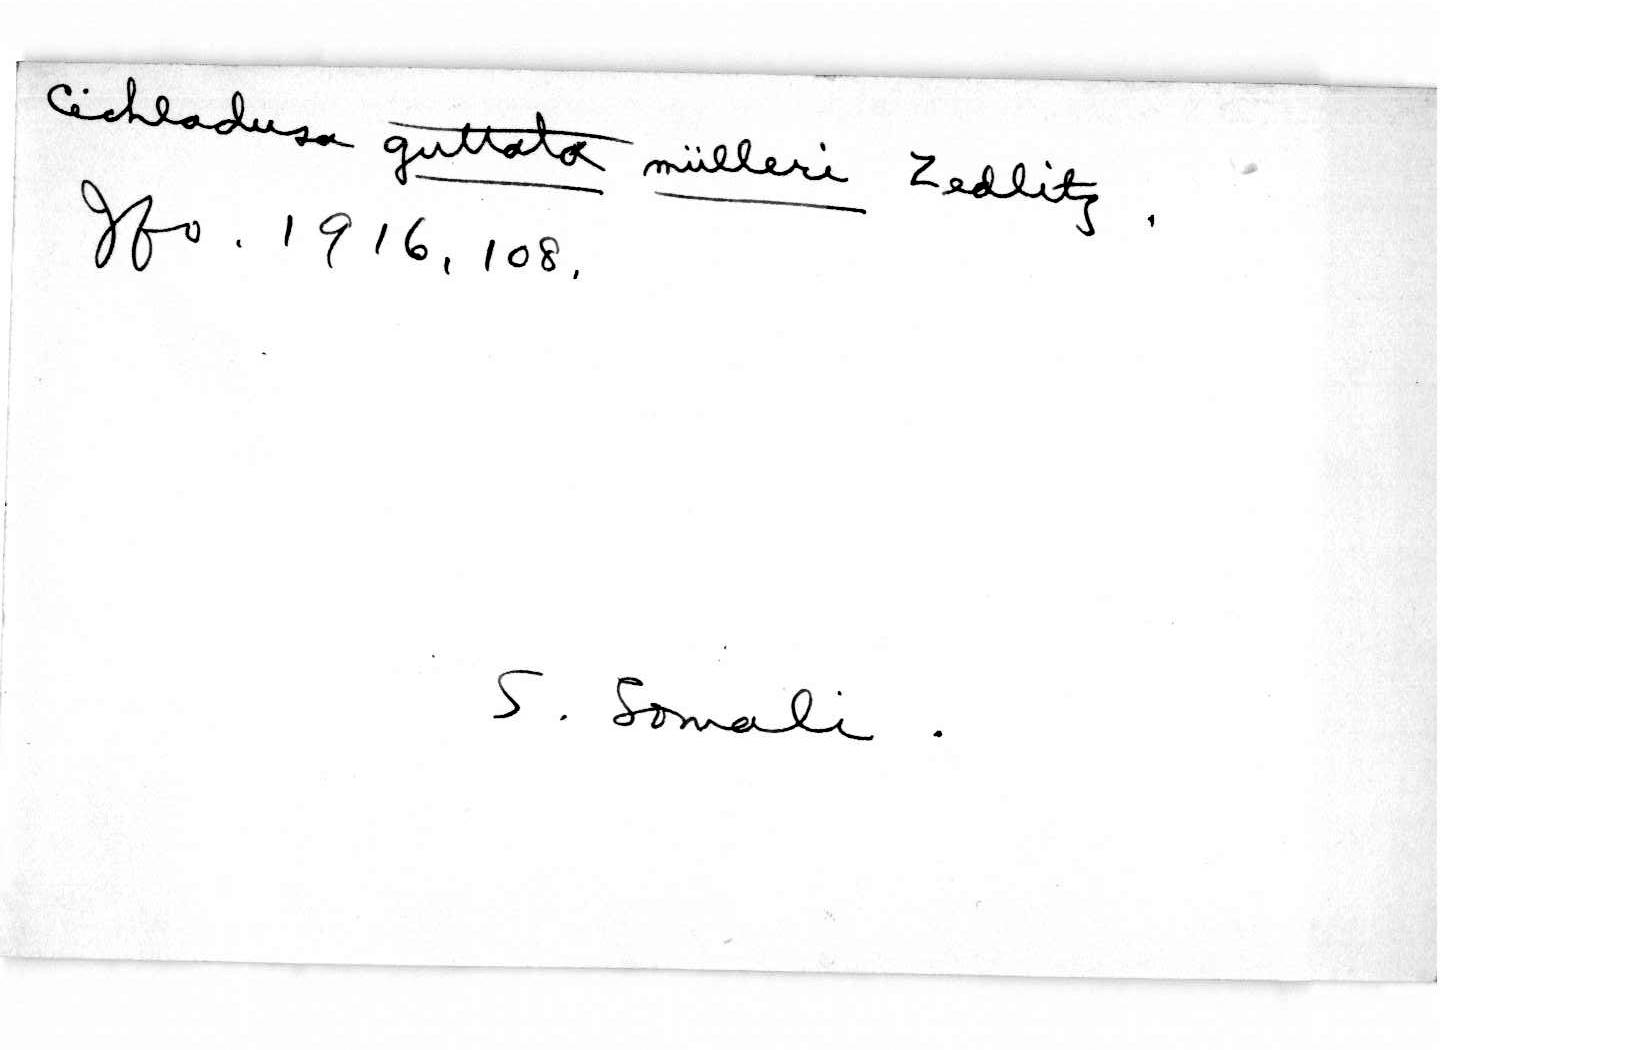 Cichladusa guttata mülleri Zedlitz.
Jfo. 1916, 108.
S. Somali.